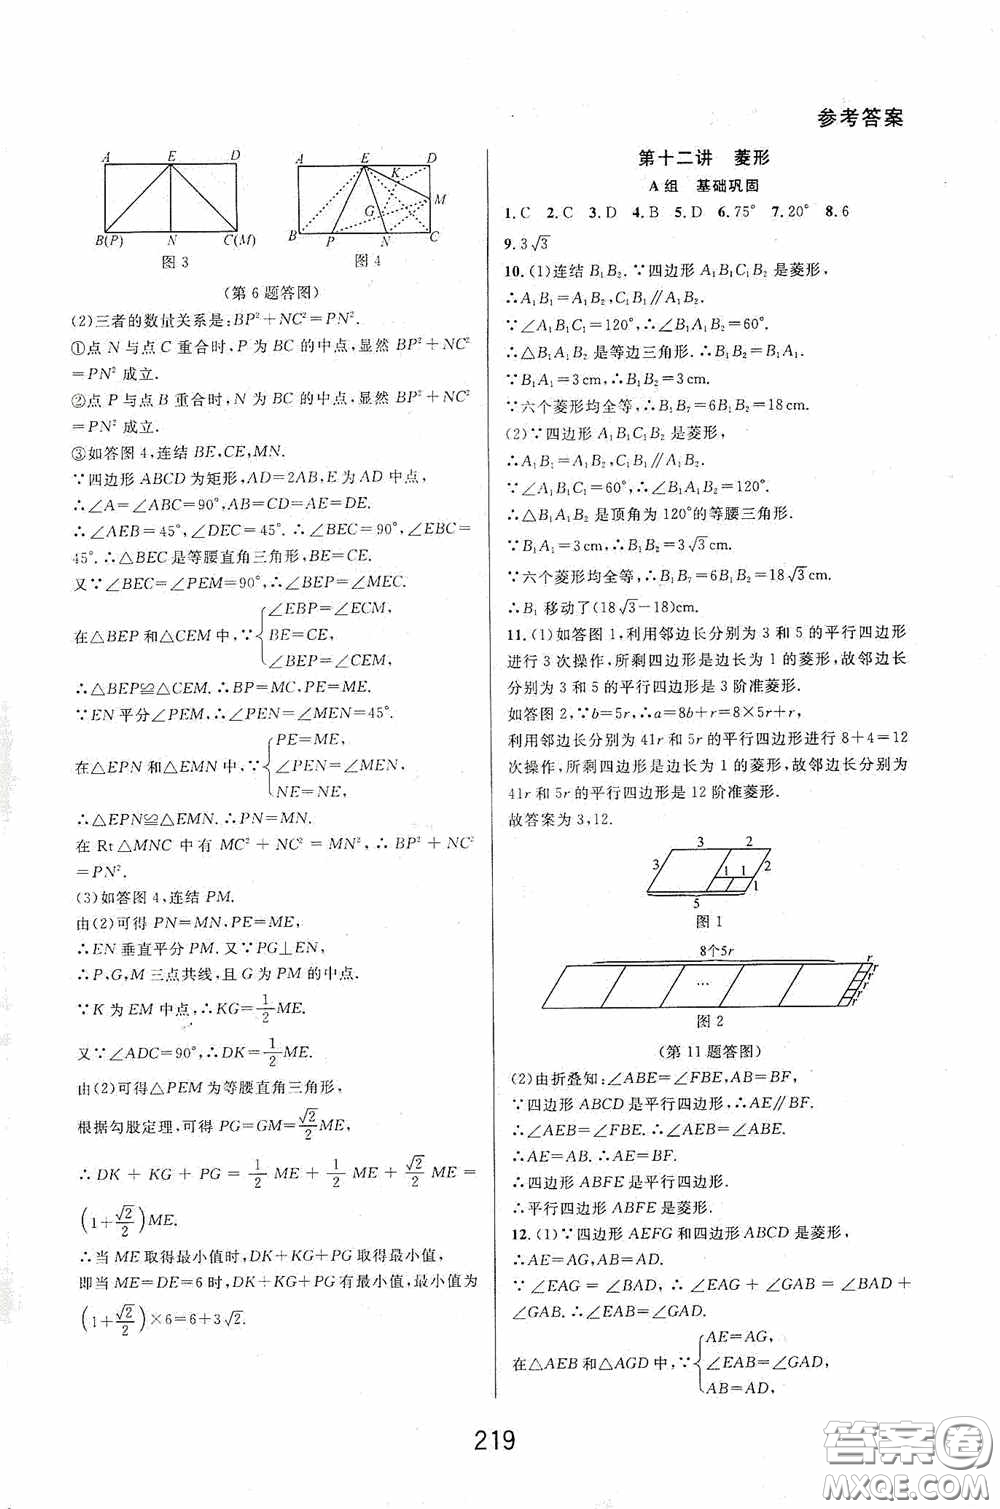 参考答案
A E D
B(P) N C(M)
图 3
A E D
K
M
G
B P N C
图 4
(第 6 题答图)
(2)三者的数量关系是:BP²+NC²=PN².
①点 N 与点 C 重合时,P 为 BC 的中点,显然 BP²+NC²
=PN² 成立.
②点 P 与点 B 重合时,N 为 BC 的中点,显然 BP²+NC²
=PN² 成立.
③如答图 4,连结 BE,CE,MN.
∵四边形 ABCD 为矩形,AD=2AB,E 为 AD 中点,
∴∠A=∠ABC=90°,AB=CD=AE=DE.
∴∠AEB=45°,∠DEC=45°.∴∠BEC=90°,∠EBC=
45°.∴△BEC是等腰直角三角形,BE=CE.
又∵∠BEC=∠PEM=90°,∴∠BEP=∠MEC.
在△BEP 和△CEM 中,∵{∠EBP=∠ECM,
BE=CE,
∠BEP=∠CEM,
∴△BEP≌△CEM.∴BP=MC,PE=ME.
∵EN平分∠PEM,∴∠PEN=∠MEN=45°.
在△EPN 和△EMN 中,∵{PE=ME,
∠PEN=∠MEN,
NE=NE,
∴△EPN≌△EMN.∴PN=MN.
在 Rt△MNC 中有 MC²+NC²=MN²,∴BP²+NC²=
PN².
(3)如答图 4,连结 PM.
由(2)可得 PN=MN,PE=ME,
∴EN 垂直平分 PM.又∵PG⊥EN,
∴P、G、M 三点共线,且 G 为 PM 的中点.
∵K 为 EM 中点,∴KG=1/2 ME.
又∵∠ADC=90°,∴DK=1/2 ME.
由(2)可得△PEM 为等腰直角三角形,
根据勾股定理,可得 PG=GM=√2/2 ME,
∴DK+KG+PG=1/2 ME+1/2 ME+√2/2 ME=
(1+√2/2)ME.
∴当 ME 取得最小值时,DK+KG+PG 取得最小值,
即当 ME=DE=6 时,DK+KG+PG 有最小值,最小值为
(1+√2/2)×6=6+3√2.
第十二讲 菱形
A 组 基础巩固
1.C 2.C 3.D 4.B 5.D 6.75° 7.20° 8.6
9.3√3
10.(1)连结 B₁B₂.∵四边形 A₁B₁C₁B₂ 是菱形,
∴A₁B₁=A₁B₂,C₁B₁∥A₁B₂.
∵∠A₁B₁C₁=120°,∴∠B₁A₁B₂=60°.
∴△B₁A₁B₂ 是等边三角形.∴B₁B₂=B₁A₁.
∵B₁A₁=3 cm,∴B₁B₂=3 cm.
∵六个菱形均全等,∴B₁B₇=6B₁B₂=18 cm.
(2)∵四边形 A₁B₁C₁B₂ 是菱形,
∴A₁B₁=A₁B₂,C₁B₁∥A₁B₂.
∵∠A₁B₁C₁=60°,∴∠B₁A₁B₂=120°.
∴△B₁A₁B₂ 是顶角为 120°的等腰三角形.
∵B₁A₁=3 cm,∴B₁B₂=3√3 cm.
∵六个菱形均全等,∴B₁B₇=6B₁B₂=18√3 cm.
∴B₁ 移动了(18√3-18)cm.
11.(1)如答图 1,利用邻边长分别为 3 和 5 的平行四边形
进行 3 次操作,所剩四边形是边长为 1 的菱形,故邻边长
分别为 3 和 5 的平行四边形是 3 阶准菱形.
如答图 2,∵b=5r,∴a=8b+r=8×5r+r,
利用邻边长分别为 41r 和 5r 的平行四边形进行 8+4=12
次操作,所剩四边形是边长为 1 的菱形,故邻边长分别为
41r 和 5r 的平行四边形是 12 阶准菱形.
故答案为 3,12.
3 2
3 1 1 2
1
5
图 1
8个5r
…
r
r
r
r
r
r
图 2
(第 11 题答图)
(2)由折叠知:∠ABE=∠FBE,AB=BF,
∵四边形 ABCD 是平行四边形,∴AE∥BF.
∴∠AEB=∠FBE.∴∠AEB=∠ABE.
∴AE=AB.∴AE=BF.
∴四边形 ABFE 是平行四边形.
∴平行四边形 ABFE 是菱形.
12.(1)∵四边形 AEFG 和四边形 ABCD 是菱形,
∴AE=AG,AB=AD.
∵∠EAG=∠BAD,∴∠EAG+∠GAB=∠BAD+
∠GAB.∴∠EAB=∠GAD.
在△AEB 和△AGD 中,∵{AE=AG,
∠EAB=∠GAD,
AB=AD,
219
答案卷
MXQE.COM